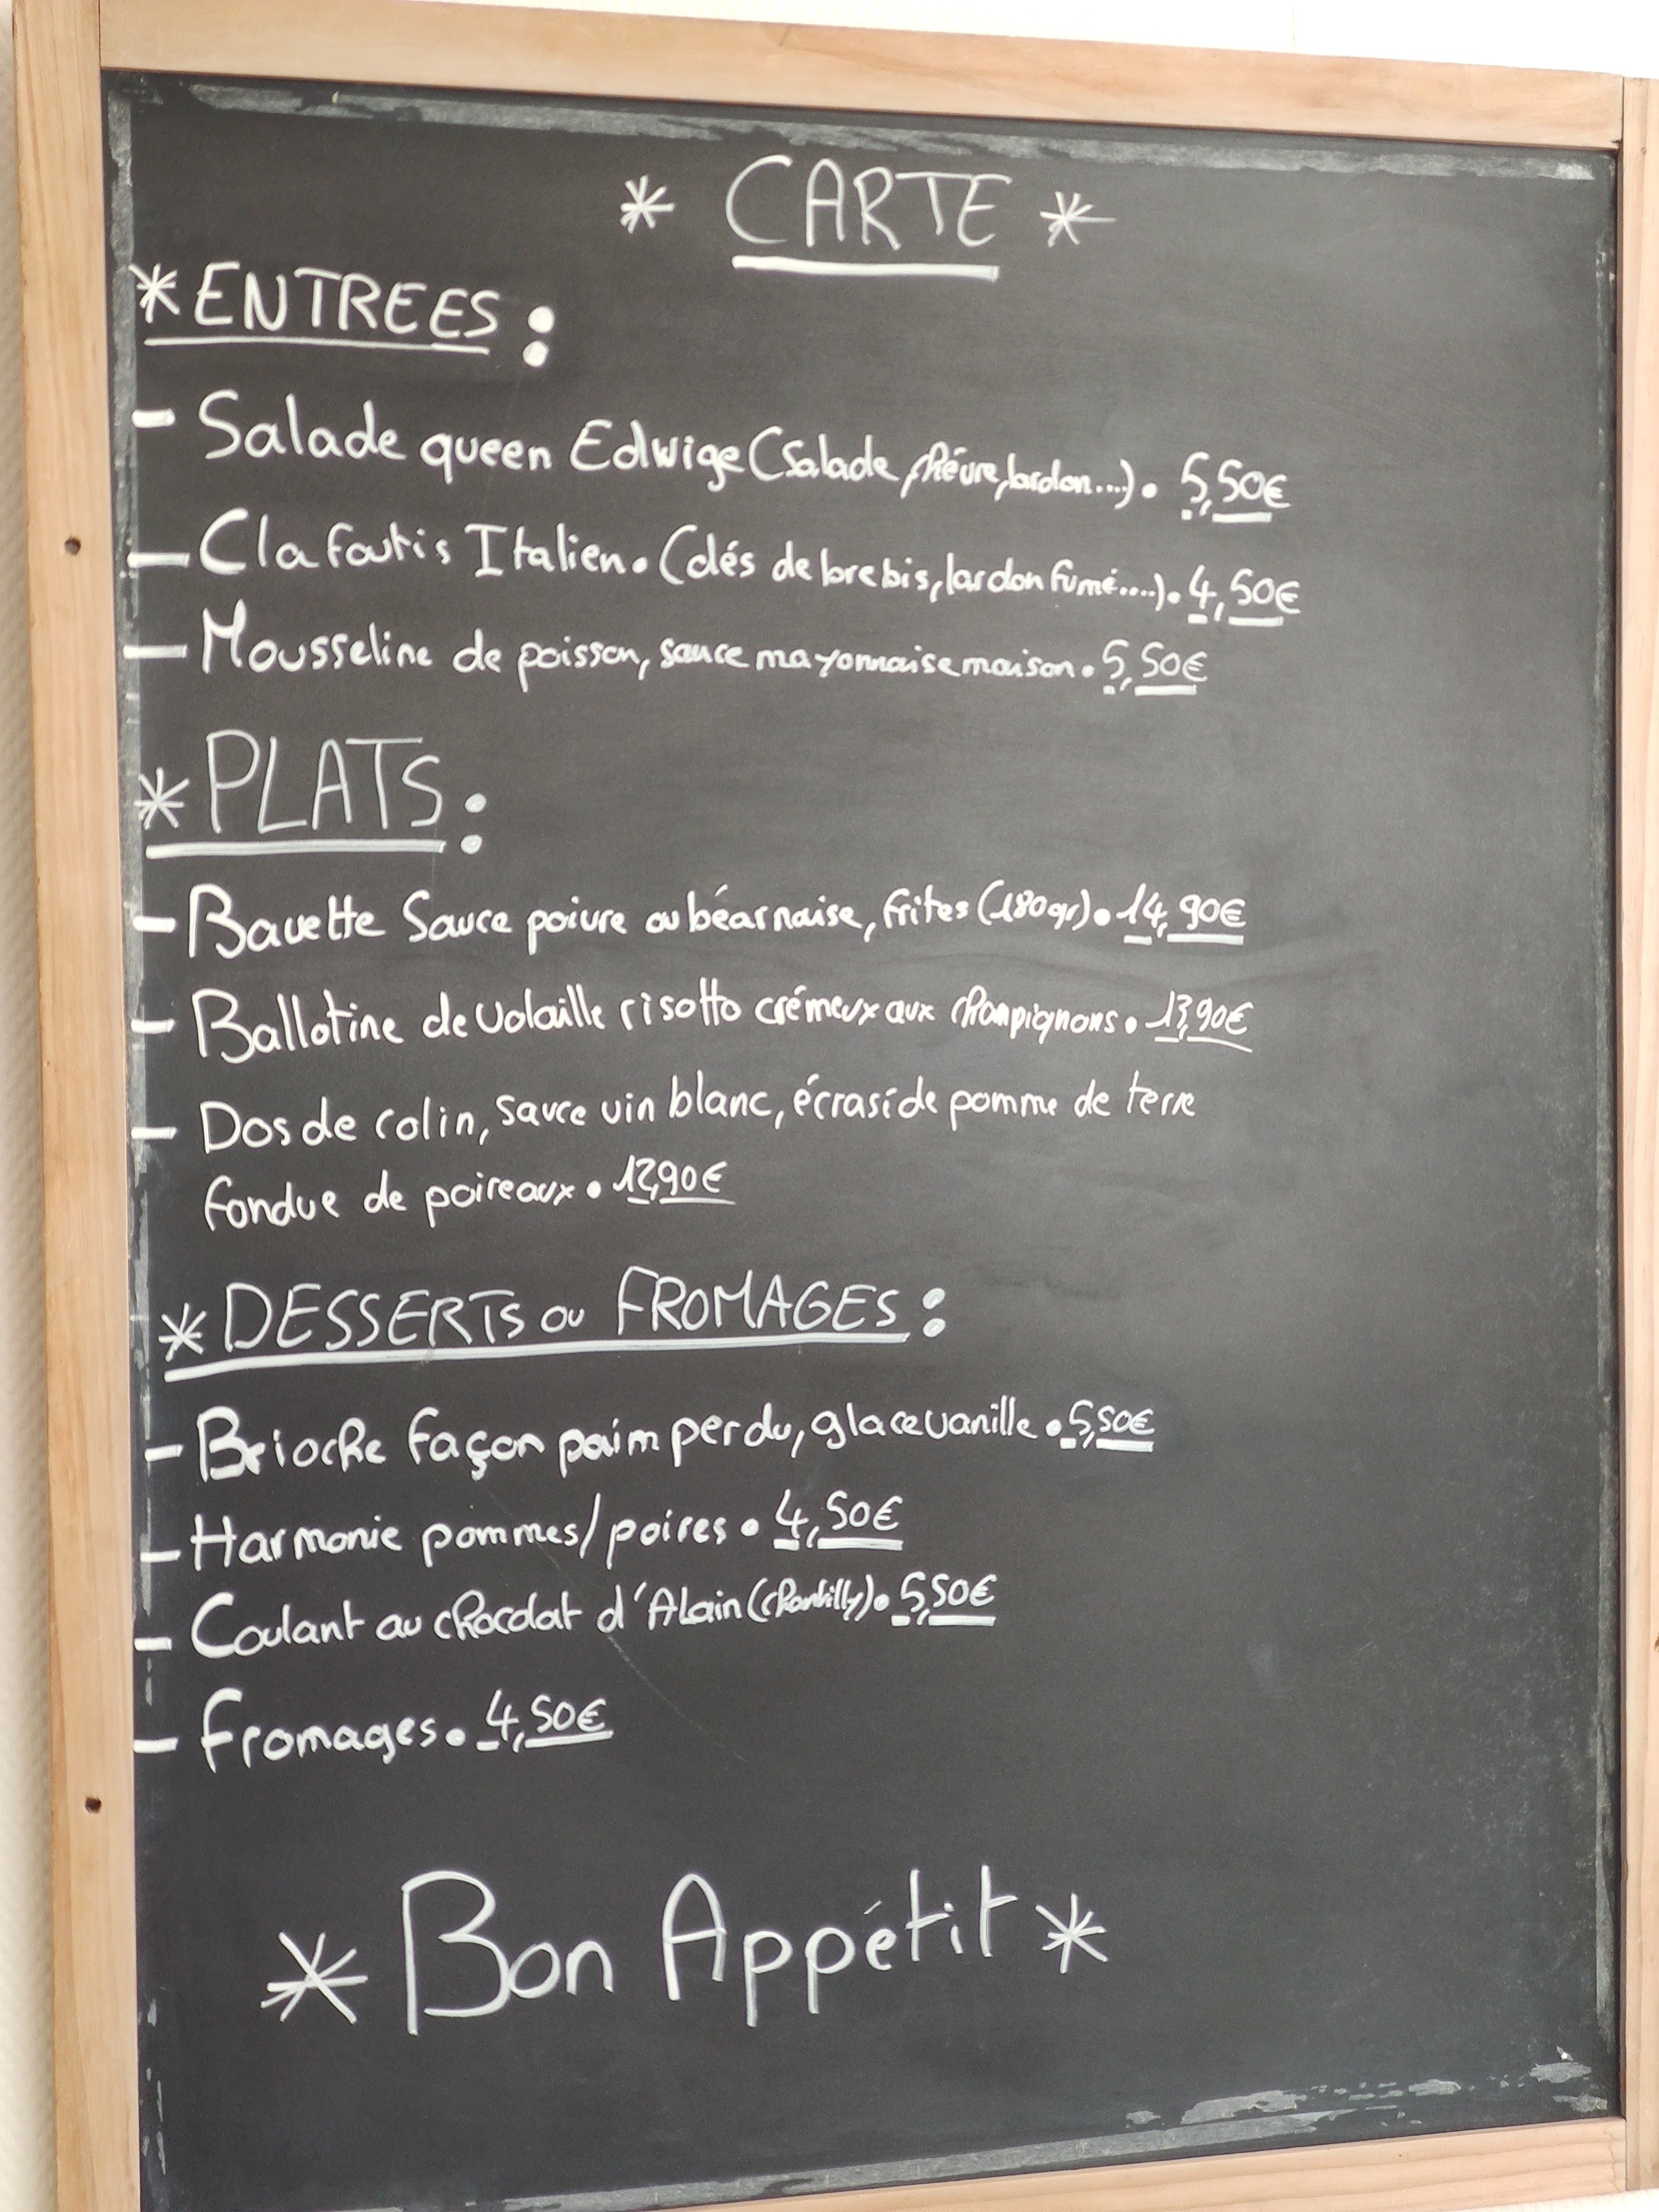 * CARTE *
* ENTREES :
- Salade queen Edwige (Salade, chévre, lardon....). 5,50€
- Clafoutis Italien. (dés de brebis, lardon fumé....). 4,50€
- Mousseline de poisson, sauce mayonnaise maison. 5,50€
* PLATS :
- Bavette Sauce poivre ou béarnaise, frites (180gr). 14,90€
- Ballotine de volaille risotto crémeux aux champignons. 13,90€
- Dos de colin, sauce vin blanc, écrasé de pomme de terre
fondue de poireaux. 12,90€
* DESSERTS ou FROMAGES :
- Brioche façon paim perdu, glace vanille. 5,50€
- Harmonie pommes/poires. 4,50€
- Coulant au chocolat d'Alain (chantilly). 5,50€
- Fromages. 4,50€
* Bon Appétit *